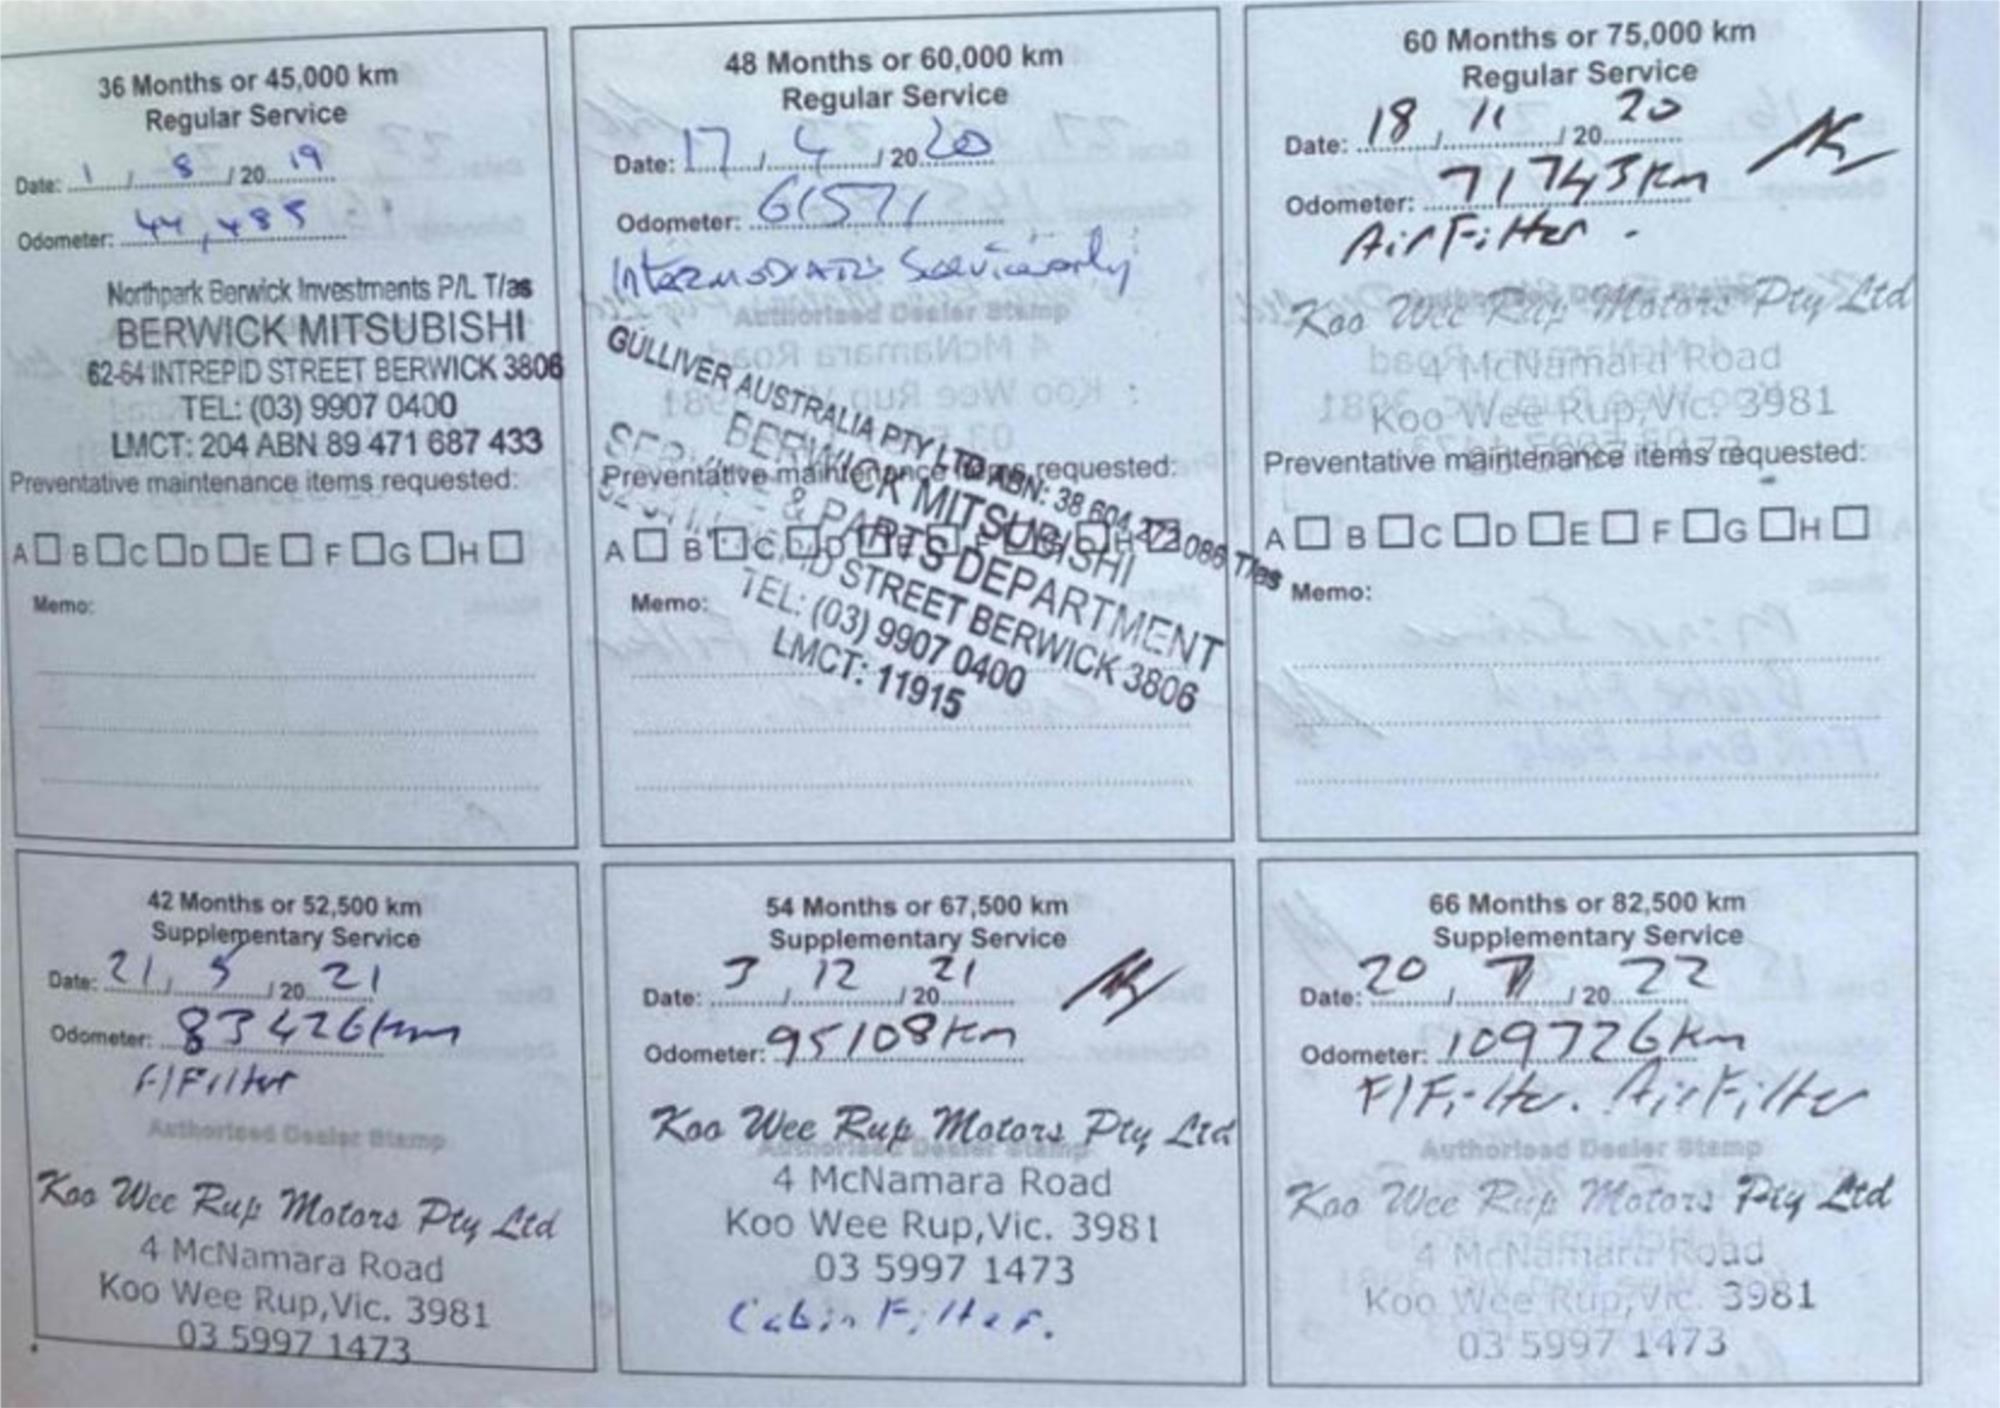 36 Months or 45,000 km
Regular Service
Date: 1 / 8 / 20 19
Odometer: 44,485
Northpark Berwick Investments P/L T/as
BERWICK MITSUBISHI
62-64 INTREPID STREET BERWICK 3806
TEL: (03) 9907 0400
LMCT: 204 ABN 89 471 687 433
Preventative maintenance items requested:
A B C D E F G H
Memo:
48 Months or 60,000 km
Regular Service
Date: 17 / 4 / 20 20
Odometer: 61571
Authorised Dealer Stamp
GULLIVER AUSTRALIA PTY LTD ABN: 38 604 273 086 T/as
BERWICK MITSUBISHI
SERVICE & PARTS DEPARTMENT
STREET BERWICK 3806
TEL: (03) 9907 0400
LMCT: 11915
Preventative maintenance items requested:
A B C D E F G H
Memo:
60 Months or 75,000 km
Regular Service
Date: 18 / 11 / 20 20
Odometer: 71743km
Air Filter.
Koo Wee Rup Motors Pty Ltd
4 McNamara Road
Koo Wee Rup, Vic. 3981
Preventative maintenance items requested:
A B C D E F G H
Memo:
42 Months or 52,500 km
Supplementary Service
Date: 21 / 5 / 20 21
Odometer: 83426km
F/Filter
Authorised Dealer Stamp
Koo Wee Rup Motors Pty Ltd
4 McNamara Road
Koo Wee Rup,Vic. 3981
03 5997 1473
54 Months or 67,500 km
Supplementary Service
Date: 3 / 12 / 20 21
Odometer: 95108km
Authorised Dealer Stamp
Koo Wee Rup Motors Pty Ltd
4 McNamara Road
Koo Wee Rup,Vic. 3981
03 5997 1473
Cabin Filter.
66 Months or 82,500 km
Supplementary Service
Date: 20 / 7 / 20 22
Odometer: 109726km
F/Filter. Air Filter
Authorised Dealer Stamp
Koo Wee Rup Motors Pty Ltd
4 McNamara Road
Koo Wee Rup,Vic. 3981
03 5997 1473